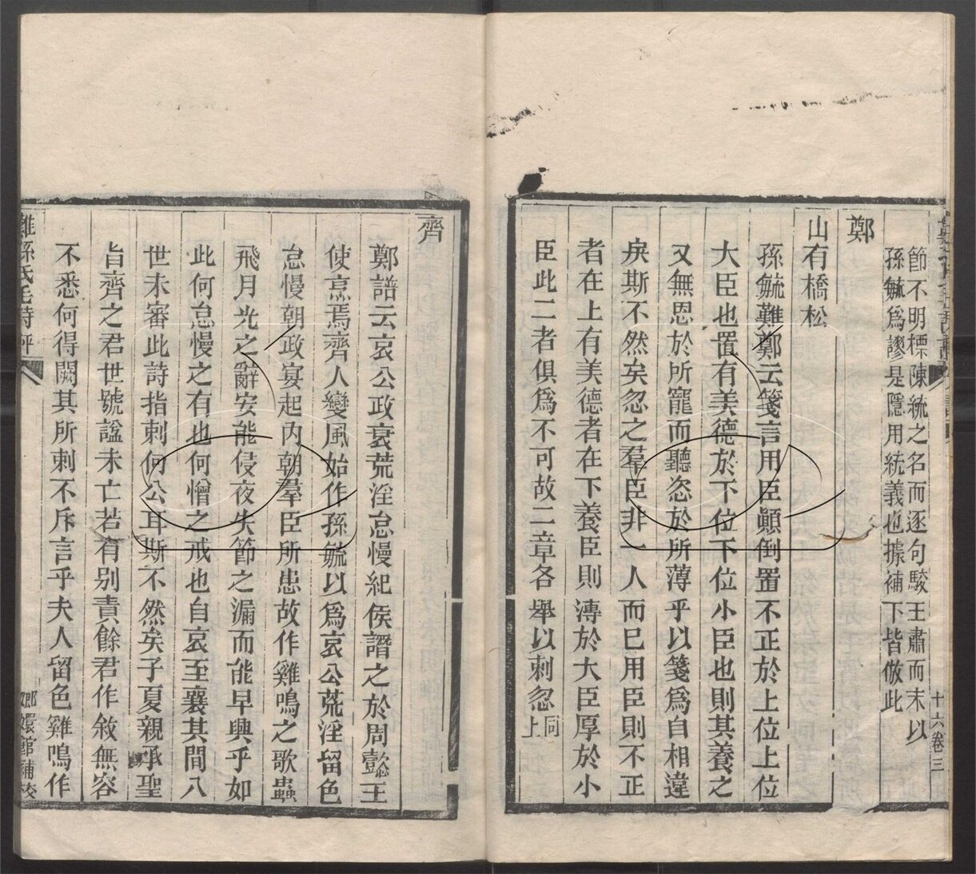 節不明標陳統之名而逐句駮王肅而未以
孫毓爲謬是隱用統義也據補下皆倣此
十六卷三
鄭
山有橋松
孫毓難鄭云箋言用臣顚倒置不正於上位上位
大臣也置有美德於下位下位小臣也則其養之
又無恩於所寵而聽恣於所薄乎以箋爲自相違
戾斯不然矣忽之羣臣非一人而已用臣則不正
者在上有美德者在下養臣則漙於大臣厚於小
臣此二者俱爲不可故二章各舉以刺忽同上
齊
鄭譜云哀公政衰荒淫怠慢紀侯譖之於周懿王
使烹焉齊人變風始作孫毓以爲哀公荒淫留色
怠慢朝政宴起內朝羣臣所患故作雞鳴之歌蟲
飛月光之辭安能侵夜失節之漏而能早興乎如
此何怠慢之有也何憎之戒也自哀至襄其間八
世未審此詩指刺何公耳斯不然矣子夏親承聖
旨齊之君世號諡未亡若有別責餘君作敘無容
不悉何得闕其所刺不斥言乎夫人留色雞鳴作
難孫氏毛詩評
嫏嬛館補校